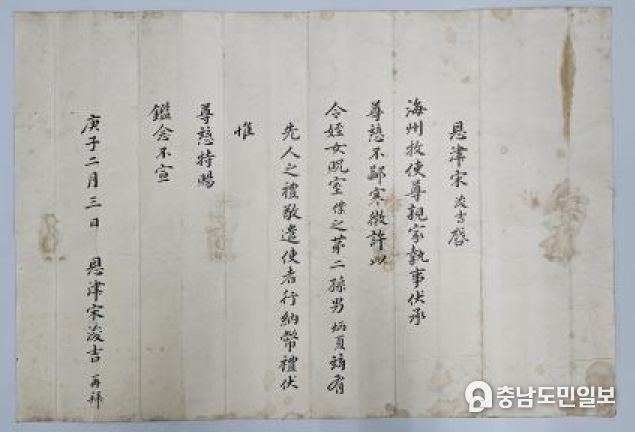 恩津宋浚吉啓
海州牧使尊親家執事伏承
尊慈不鄙寒微許以
令姪女貺室僕之第二孫男炳夏玆有
先人之禮敬遣使者行納幣禮伏
惟
尊慈特賜
鑑念不宣
庚子二月三日 恩津宋浚吉 再拜
충남도민일보